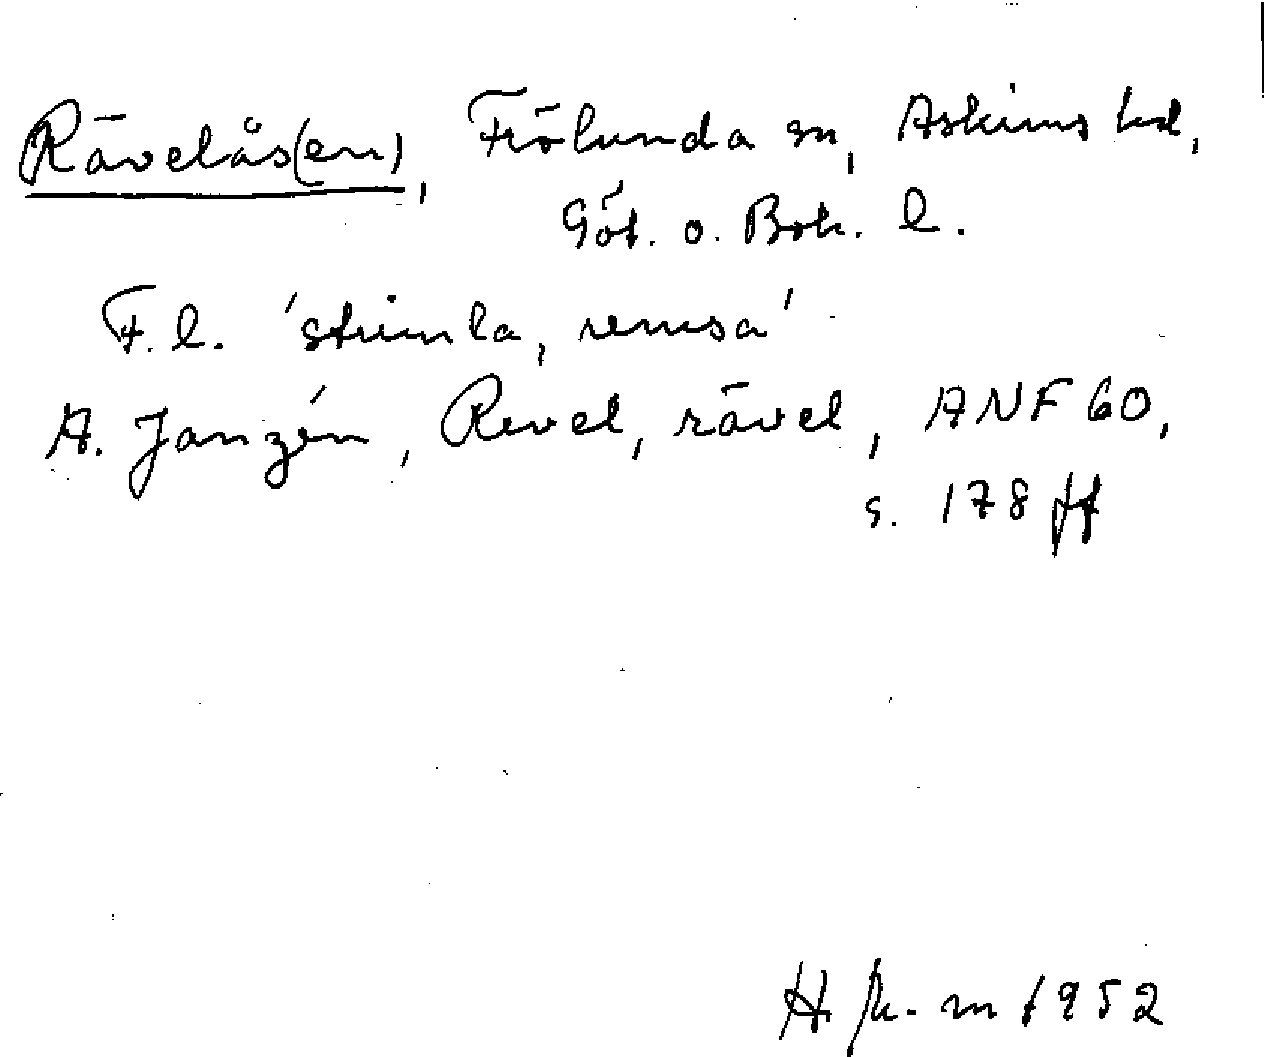 Rävelås(en), Frölunda sn, Askims hd,
Göt. o. Boh. l.
F. l. 'strimla, remsa'
A. Janzén, Revel, rävel, ANF 60,
s. 178 ff
H 1952